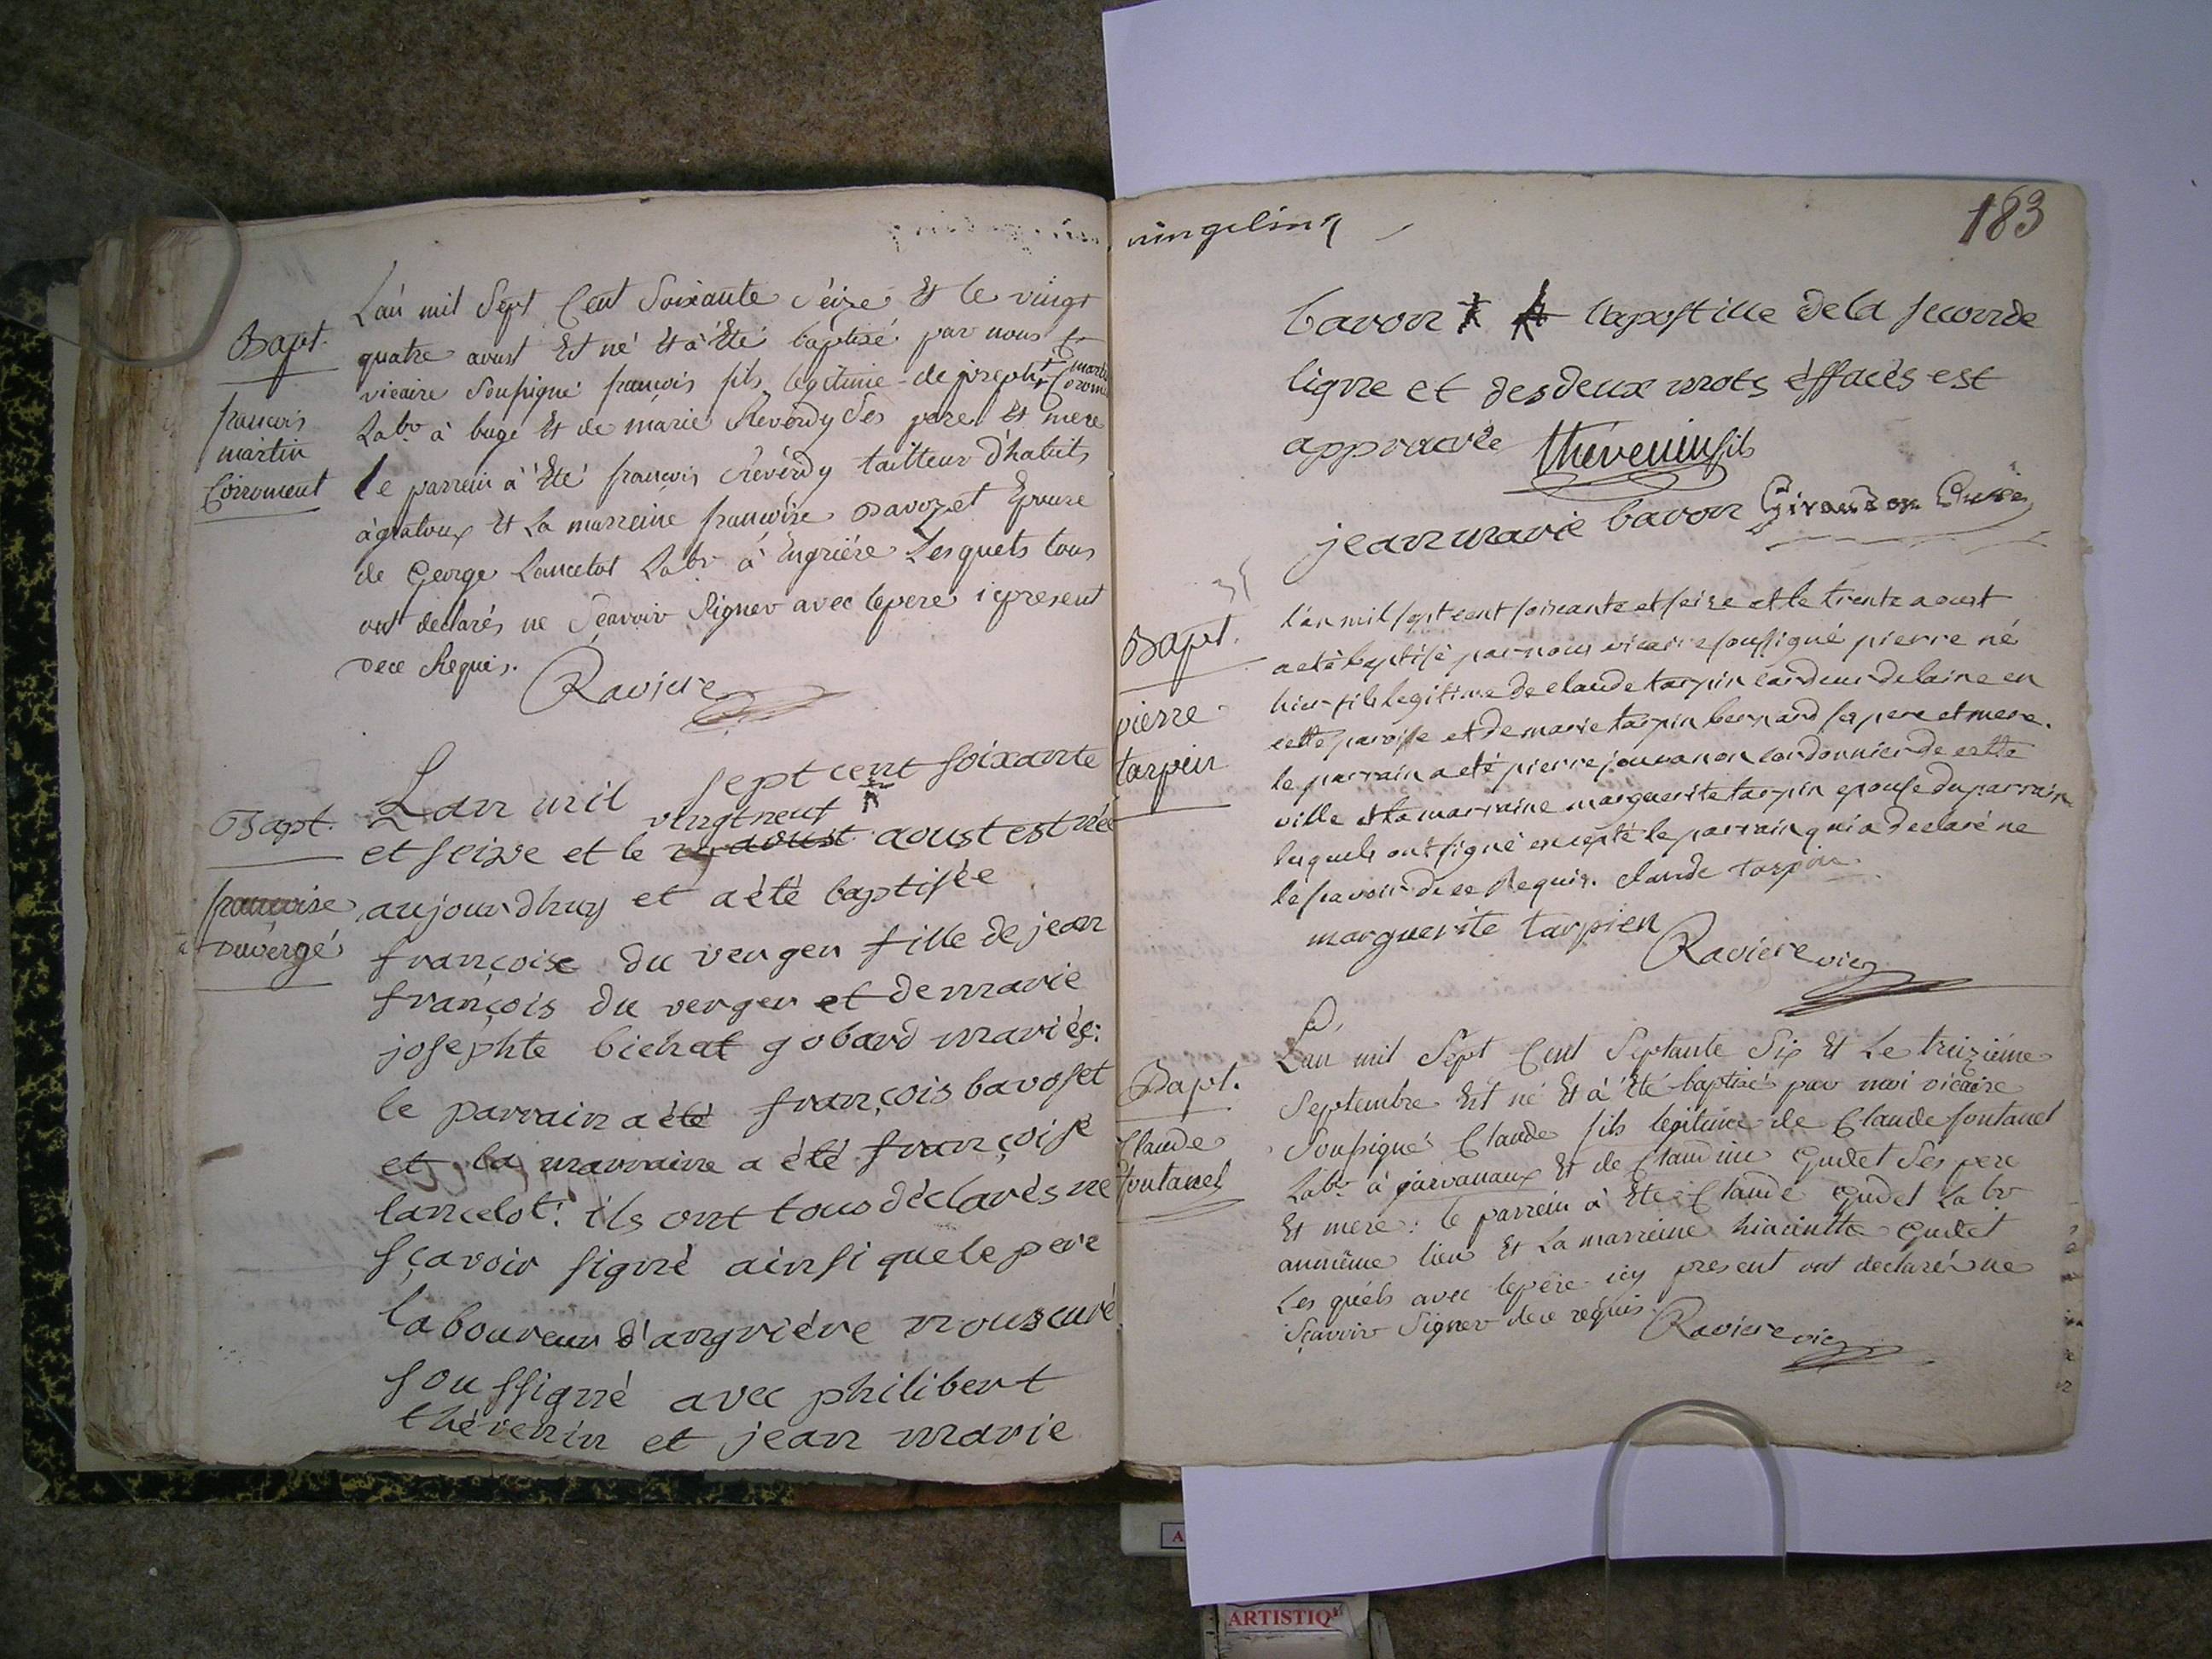 Bapt.
françois
martin
Corroment
L'an mil Sept Cent Soixante Seize Et le vingt
quatre aoust Est né Et a Eté baptisé par nous
vicaire Soussigné françois fils legitime de joseph martin
Labr à bugé Et de marie Reverdy Ses pere Et mere
le parrein à Eté françois Reverdy tailleur d'habits
à gratoux Et La marreine françoise Bavozet Epouse
de George Lancelot Labr à Engriére Lesquels tous
ont declarés ne Sçavoir Signer avec le pere icy present
de ce Requis.
Raviere
Bapt.
françoise
duvergé
L'an mil sept cent soixante
vingt neuf
et seize et le aoust aoust est née
aujourdhuy et a été baptisée
françoise du verger fille de jean
françois du verger et de marie
josephte bichat gobard mariés:
le parrain a été françois bavoset
et la marraine a été françoise
lancelot: ils ont tous déclarés ne
sçavoir signé ainsi que le pere
laboureur d'angriére nous curé
soussigné avec philibert
thévenin et jean marie
183
bavon l'apostille de la seconde
ligne et des deux mots éffacés est
approuvée thévenin fils
jean marie bavon Giraudon Curé
Bapt.
pierre
tarpin
l'an mil sept cent soixante et seize et le trente aoust
a eté baptisé par nous vicaire soussigné pierre né
hier fils legitime de claude tarpin cardeur de laine en
cette paroisse et de marie tarpin bernard ses pere et mere.
le parrain a eté pierre jouvanon cordonnier de cette
ville et la marraine marguerite tarpin epouse du parrain
lesquels ont signé excepté le parrain qui a declaré ne
le scavoir de ce Requis. claude tarpin
marguerite tarpien
Raviere vic
Bapt.
Claude
fontanel
L'an mil Sept Cent Septante Six Et Le treiziéme
Septembre Est né Et à Eté baptisé par moi vicaire
Soussigné Claude fils legitime de Claude fontanel
Labr à garvanaux Et de Claudine Gudet Ses pere
Et mere: le parrein à Eté Claude Gudet Labr
au même lieu Et La marreine hiacinthe Gudet
Les quels avec le pere icy present ont declarés ne
Sçavoir Signer de ce requis.
Raviere vic
ARTISTIQ